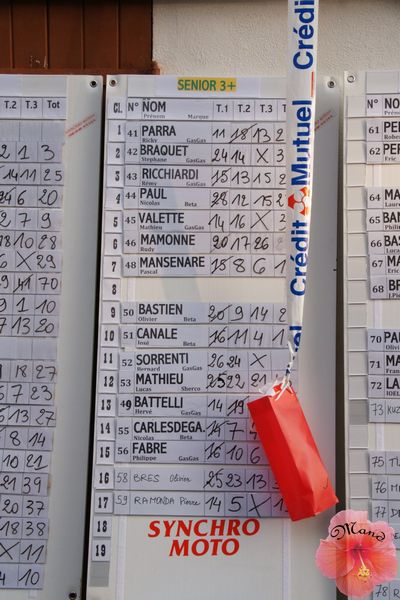 SENIOR 3+
CL N° NOM T.1 T.2 T.3 T
Prénom Marque
1 41 PARRA 11 18 13 2
Ricky GasGas
2 42 BRAQUET 24 14 X
Stephane GasGas
3 43 RICCHIARDI 15 13 15 2
Rémy GasGas
4 44 PAUL 28 12 15 2
Nicolas Beta
5 45 VALETTE 14 16 X
Mathieu GasGas
6 46 MAMONNE 20 17 26
Rudy
7 48 MANSENARE 15 8 6 1
Pascal
8
9 50 BASTIEN 20 9 14 2
Olivier Beta
10 51 CANALE 16 11 4 1
José Beta
11 52 SORRENTI 26 24 X
Bernard GasGas
12 53 MATHIEU 25 22 21
Lucas Sherco
13 49 BATTELLI 14 19
Hervé GasGas
14 55 CARLESDEGA. 14 7
Nicolas Beta
15 56 FABRE 16 10 6
Philippe GasGas
16 58 BRES Olivier 25 23 13
17 59 RAMONDA Pierre 14 5 X
18
19
SYNCHRO
MOTO
Crédit Mutuel Crédit
T.2 T.3 Tot
2 1 3
14 11 25
24 6 20
2 7 9
18 10 28
6 X 29
41 70
9 1 10
7 13 20
18 27
6 7 23
13 27
8 14
10 21
21 39
20 37
18 38
X 11
4 10
N° NO
61 PE
62 PE
64 MA
65 BAN
66 BAS
67 MA
68 BR
70 PA
71 MA
72 LA
73 KUZ
75
76
77
78
Mand